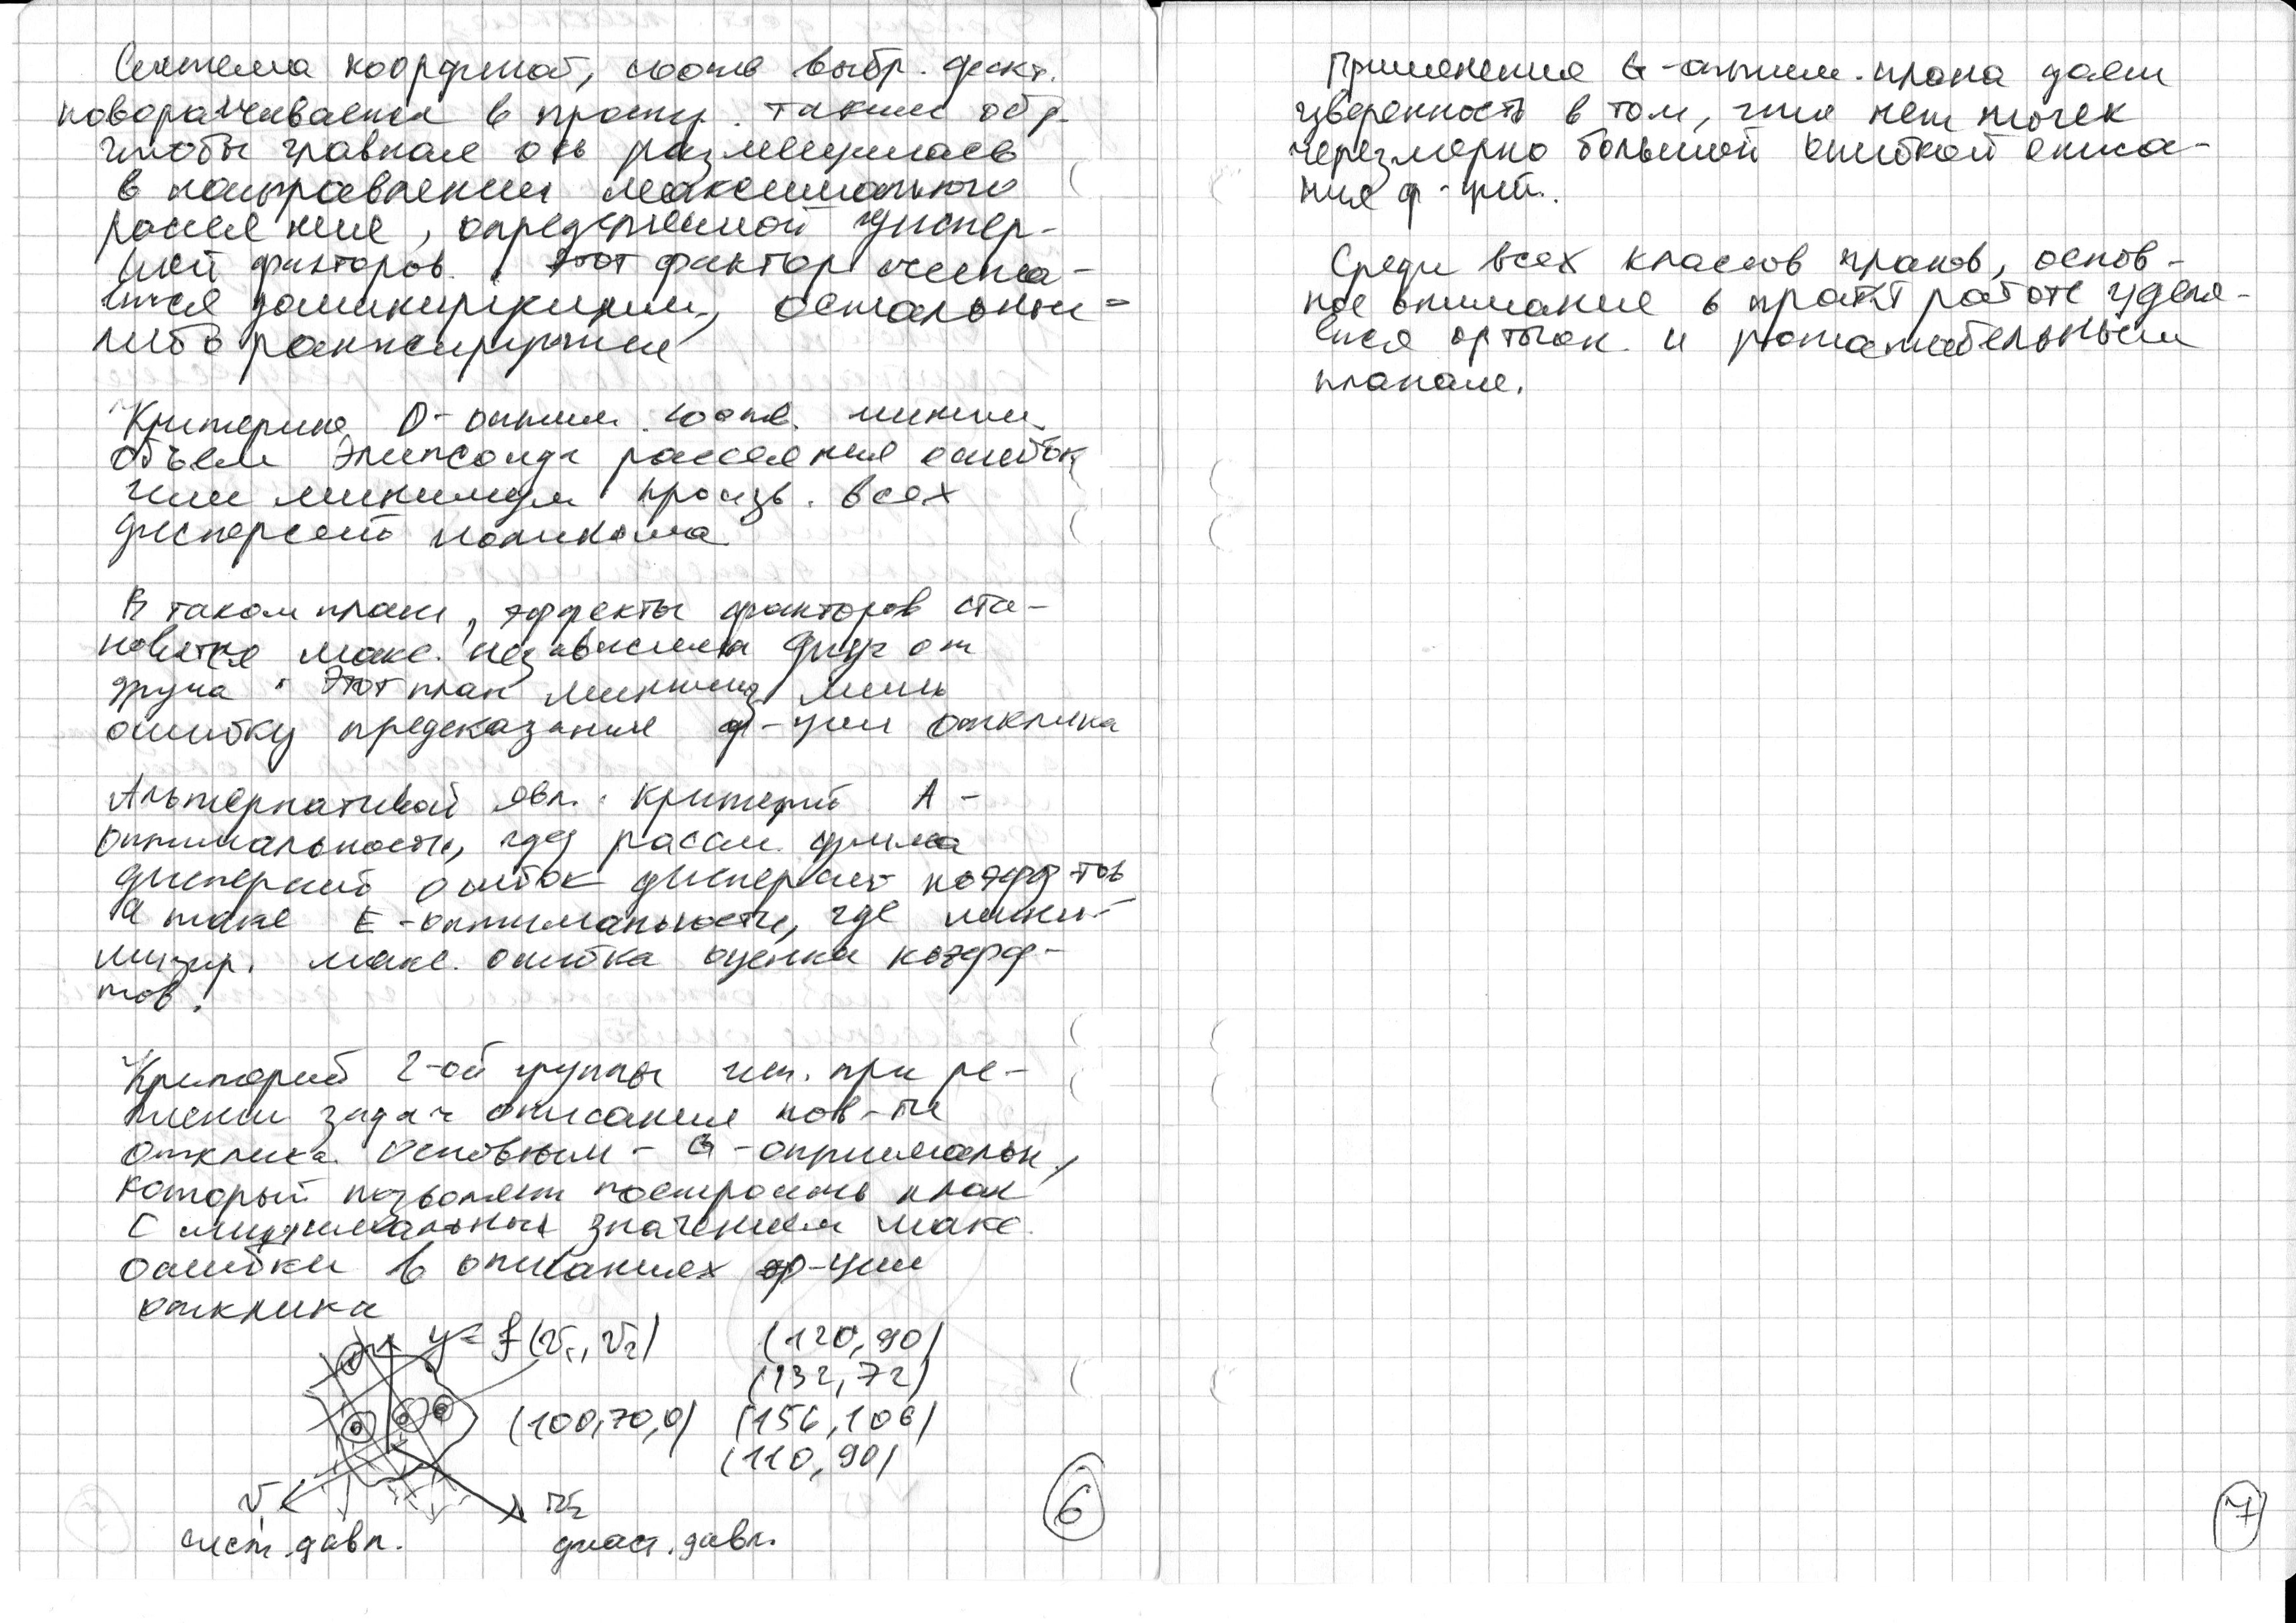 Система координат, соотв выбр. фект.
поворачивается в простр. таким обр.
чтобы главная ось размещилась
в направлении максимального
рассеяния, определяемой диспер-
сией факторов. Этот фактор счита-
ется доминирующим, остальные -
либо ранжируются
Критерию D-оптим. соотв. миним.
объем элипсоида рассеяния ошибок
или минимум произв. всех
дисперсий полинома
В таком плане, эффекты факторов ста-
новятся макс. независимы друг от
друга. Этот план миними лишь
ошибку предсказания ф-ции отклика
Альтернативой явл. критерий А-
оптимальности, где рассм. сумма
дисперсий ошибок дисперсий коэфф тов
а также Е-оптимальности, где мини-
мизир. макс. ошибка оценки коэфф-
тов.
Критерий 2-ой группы исп. при ре-
шении задач описания пов-ти
отклика. Основным - G-оптимальн.,
который позволяет построить план
с минимальным значением макс.
ошибки в описаниях ф-ции
отклика
y = f(v₁, v₂) (120, 90)
(132, 72)
(100, 70, 0) (156, 106)
(110, 90)
v₁ v₂
сист. давл. диаст. давл.
6
Применение G-оптим. плана дает
уверенность в том, что нет точек
черезмерно большой ошибкой описа-
ния ф-ций.
Среди всех классов планов, основ-
ное внимание в практ работе уделя-
ется ортогон. и ротатабельным
планам.
7